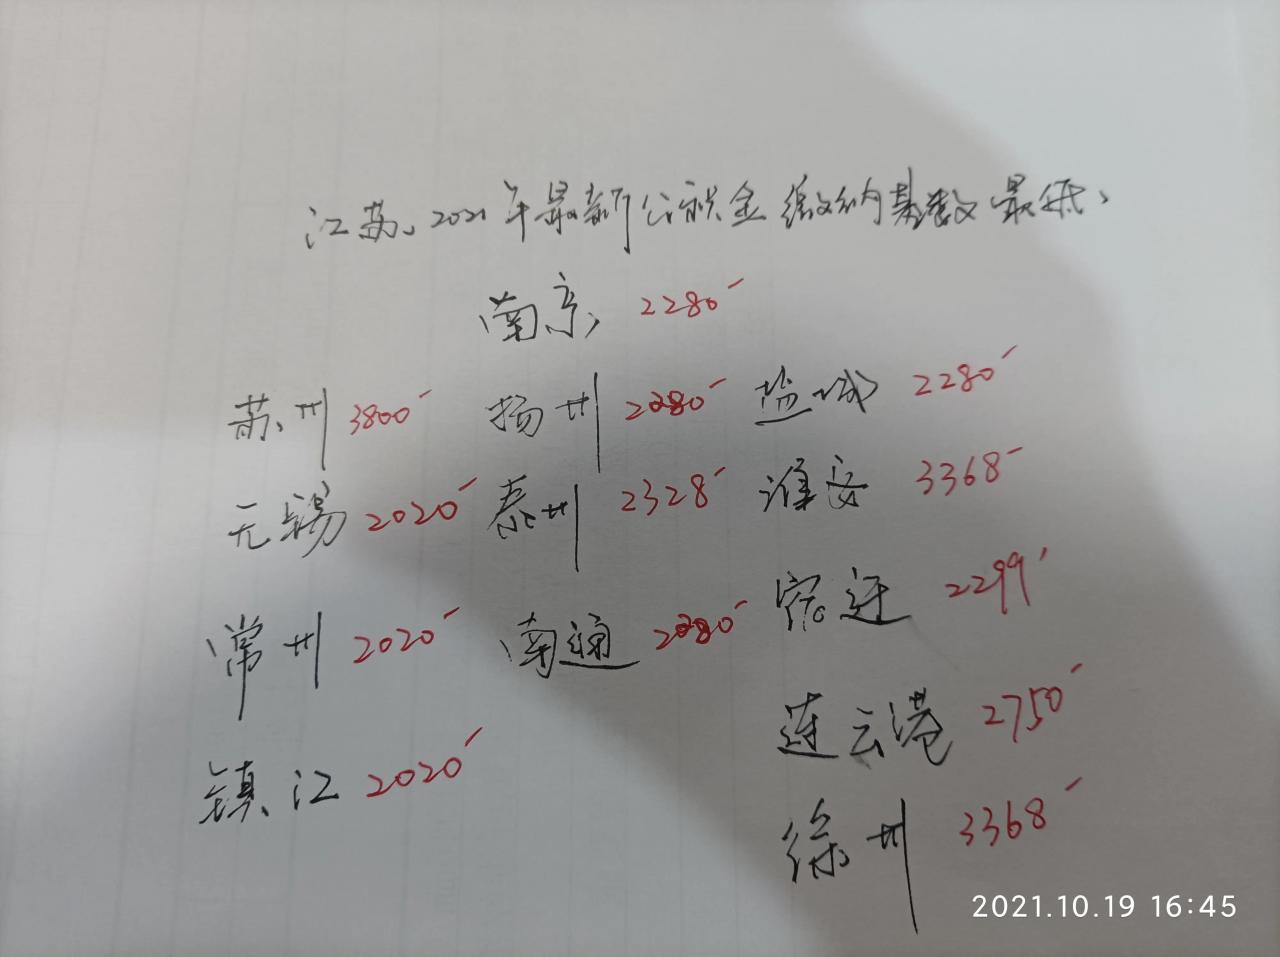 江苏、2021年最新公积金缴纳基数最低、
南京 2280
苏州 3800 扬州 2280 盐城 2280
无锡 2020 泰州 2328 淮安 3368
常州 2020 南通 2280 宿迁 2299
镇江 2020 连云港 2750
徐州 3368
2021.10.19 16:45